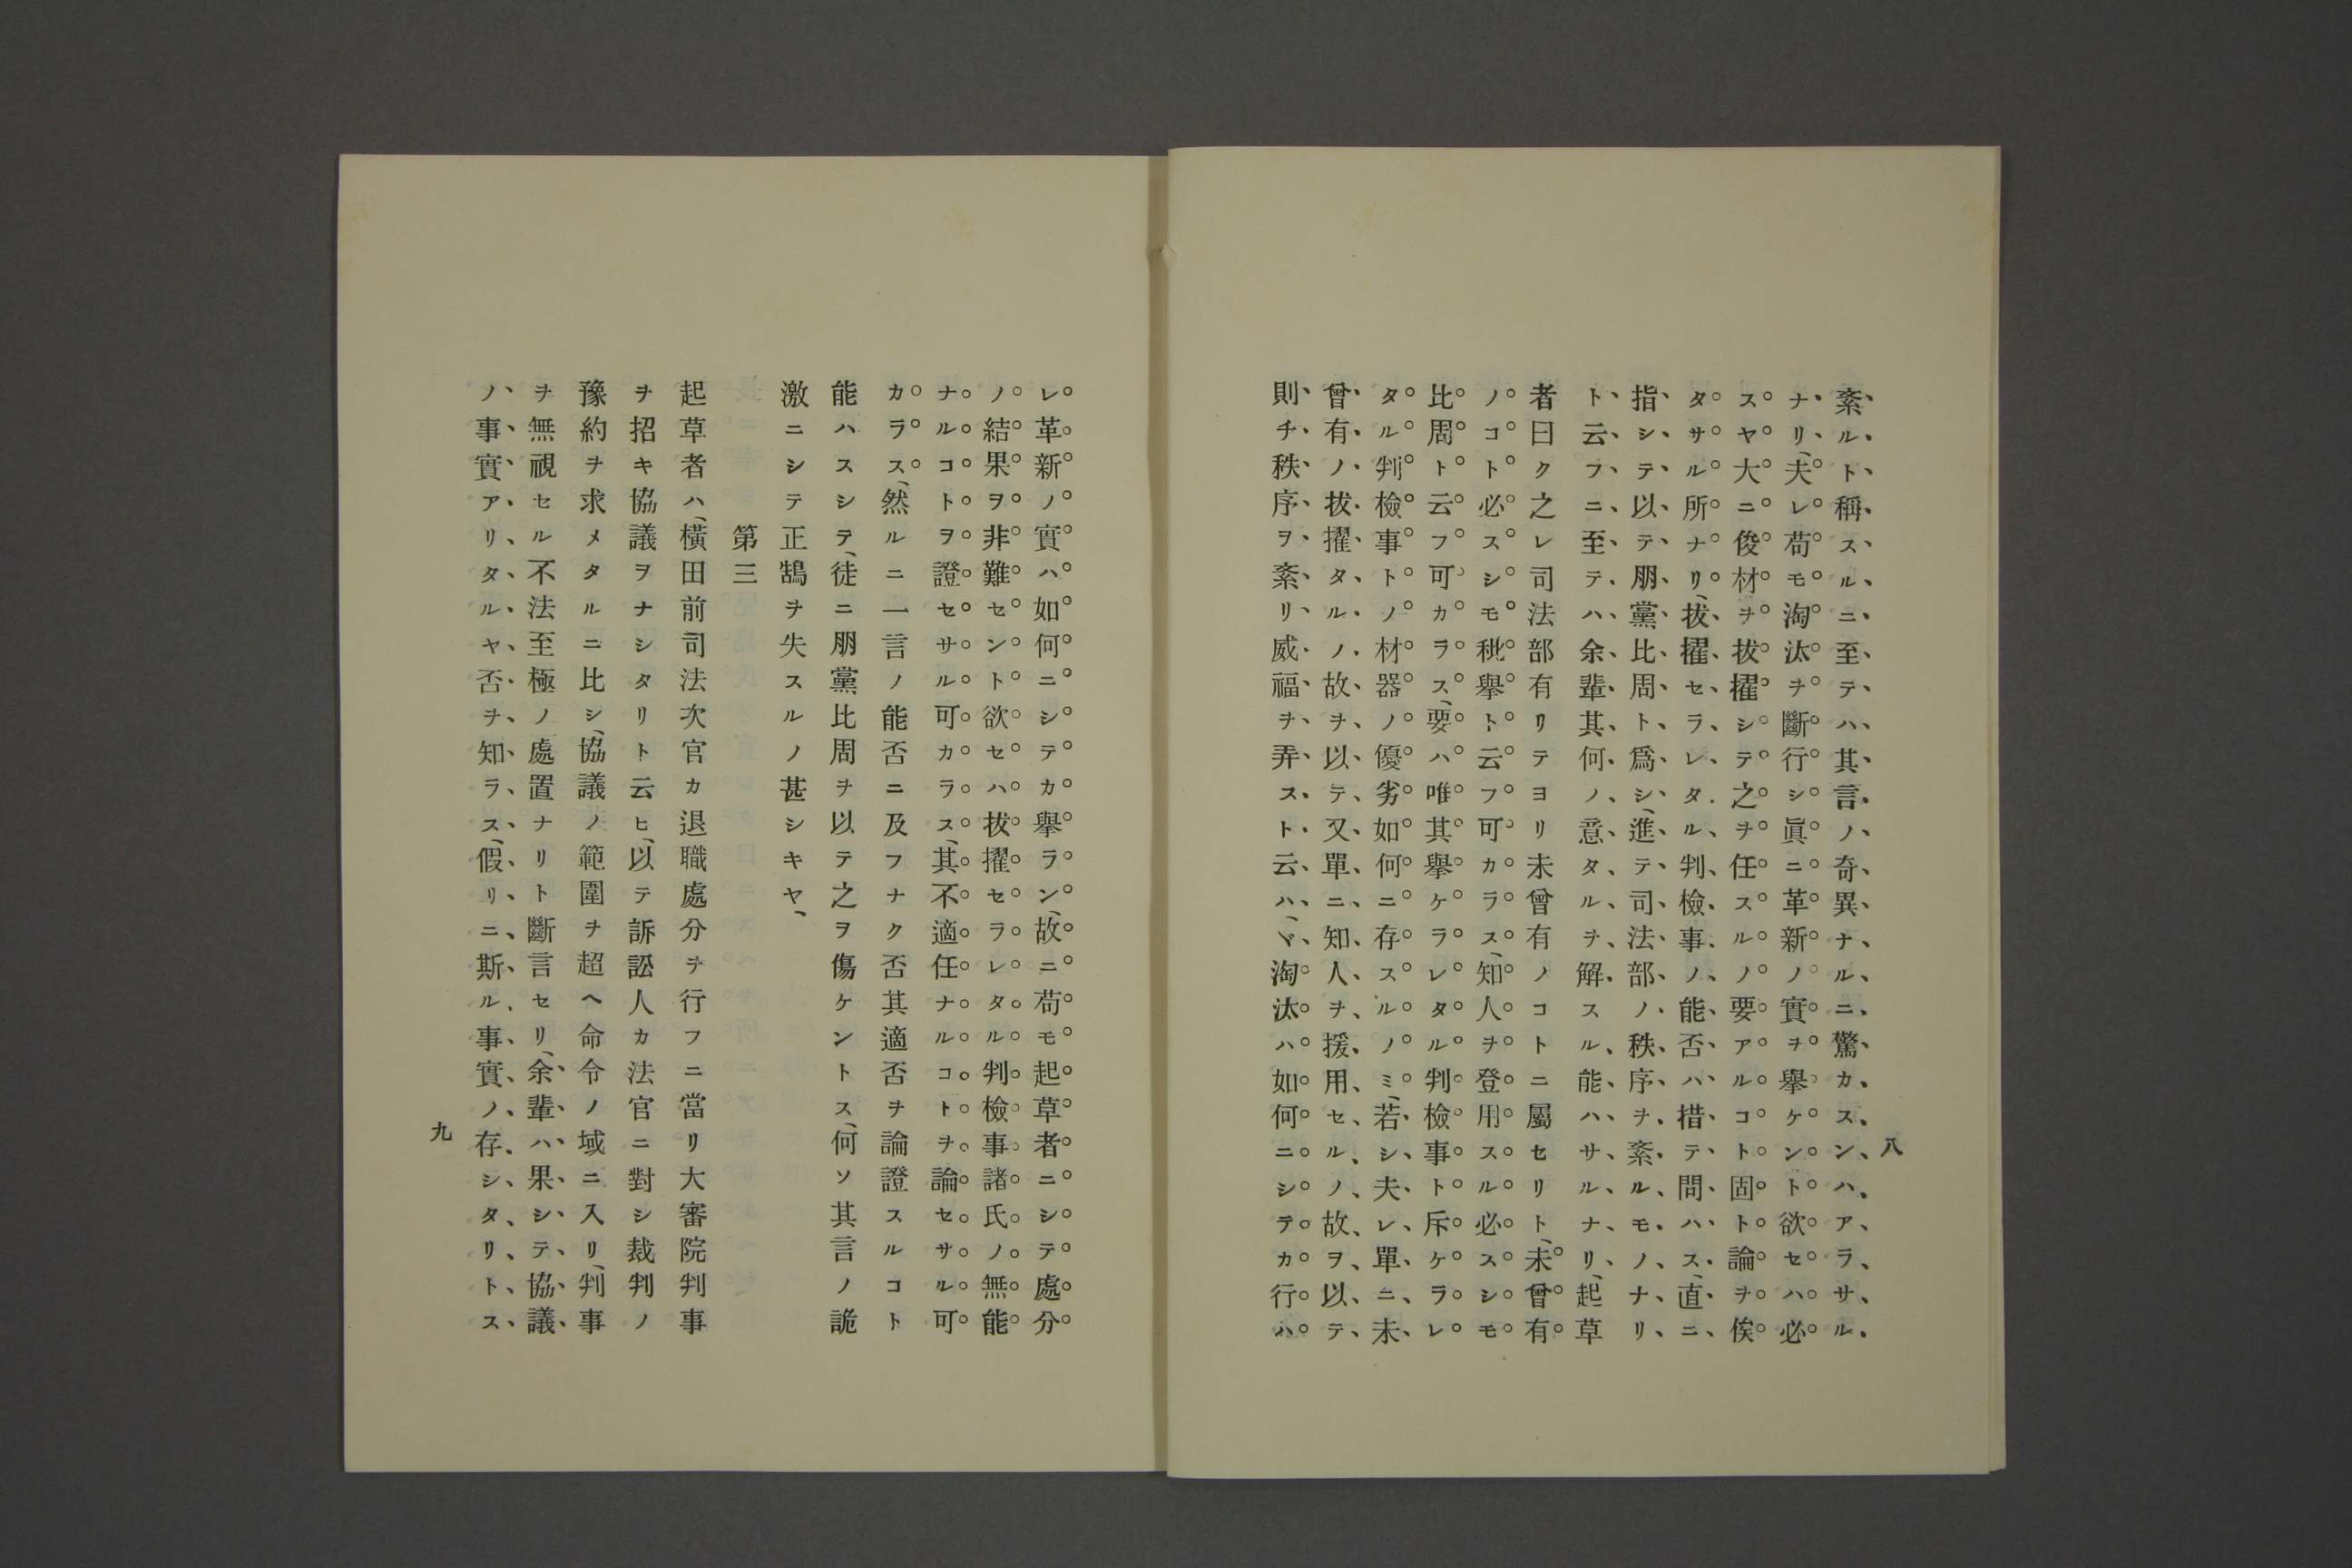 八
紊ルト稱スルニ至テハ其言ノ奇異ナルニ驚カスンハアラサル
ナリ、夫レ苟モ淘汰ヲ斷行シ眞ニ革新ノ實ヲ擧ケント欲セハ必
スヤ大ニ俊材ヲ拔擢シテ之ヲ任スルノ要アルコト固ト論ヲ俟
タサル所ナリ、拔擢セラレタル判檢事ノ能否ハ措テ問ハス、直ニ
指シテ以テ朋黨比周ト爲シ、進テ司法部ノ秩序ヲ紊ルモノナリ
ト云フニ至テハ余輩其何ノ意タルヲ解スル能ハサルナリ、起草
者曰ク之レ司法部有リテヨリ未曾有ノコトニ屬セリト、未曾有
ノコト必スシモ秕擧ト云フ可カラス、知人ヲ登用スル必スシモ
比周ト云フ可カラス、要ハ唯其擧ケラレタル判檢事ト斥ケラレ
タル判檢事トノ材器ノ優劣如何ニ存スルノミ、若シ夫レ單ニ未
曾有ノ拔擢タルノ故ヲ以テ又單ニ知人ヲ援用セルノ故ヲ以テ
則チ秩序ヲ紊リ威福ヲ弄スト云ハヾ、淘汰ハ如何ニシテカ行ハ
レ革新ノ實ハ如何ニシテカ擧ラン、故ニ苟モ起草者ニシテ處分
ノ結果ヲ非難セント欲セハ拔擢セラレタル判檢事諸氏ノ無能
ナルコトヲ證セサル可カラス、其不適任ナルコトヲ論セサル可
カラス、然ルニ一言ノ能否ニ及フナク否其適否ヲ論證スルコト
能ハスシテ、徒ニ朋黨比周ヲ以テ之ヲ傷ケントス、何ソ其言ノ詭
激ニシテ正鵠ヲ失スルノ甚シキヤ、
第三
起草者ハ、橫田前司法次官カ退職處分ヲ行フニ當リ大審院判事
ヲ招キ協議ヲナシタリト云ヒ、以テ訴訟人カ法官ニ對シ裁判ノ
豫約ヲ求メタルニ比シ、協議ノ範圍ヲ超ヘ命令ノ域ニ入リ、判事
ヲ無視セル不法至極ノ處置ナリト斷言セリ、余輩ハ果シテ協議
ノ事實アリタルヤ否ヲ知ラス、假リニ斯ル事實ノ存シタリトス
九